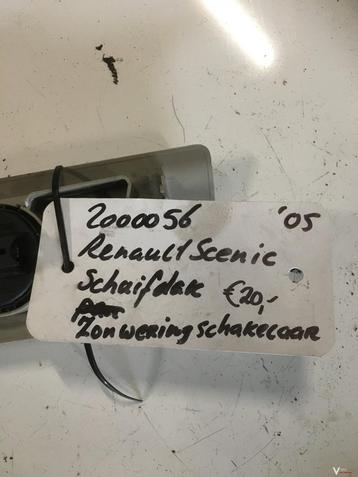 2000056 '05
Renault Scenic
Schuifdak €20,-
Zonweringschakelaar